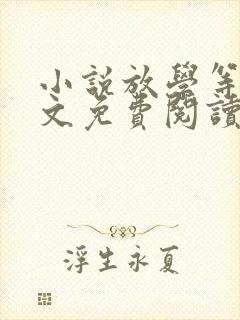 小説放學等
文免費閱讀
浮生永夏